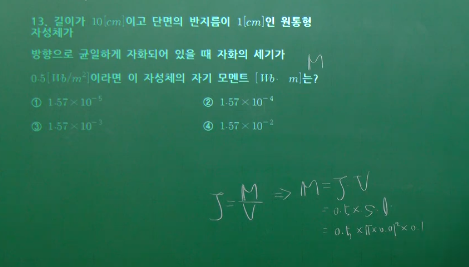 13. 길이가 10[cm]이고 단면의 반지름이 1[cm]인 원통형
자성체가
방향으로 균일하게 자화되어 있을 때 자화의 세기가
M
0.5[Wb/m²]이라면 이 자성체의 자기 모멘트 [Wb· m]는?
① 1.57×10⁻⁵ ② 1.57×10⁻⁴
③ 1.57×10⁻³ ④ 1.57×10⁻²
J = M/V ⇒ M = J V
= 0.5 × S l
= 0.5 × π × 0.01² × 0.1